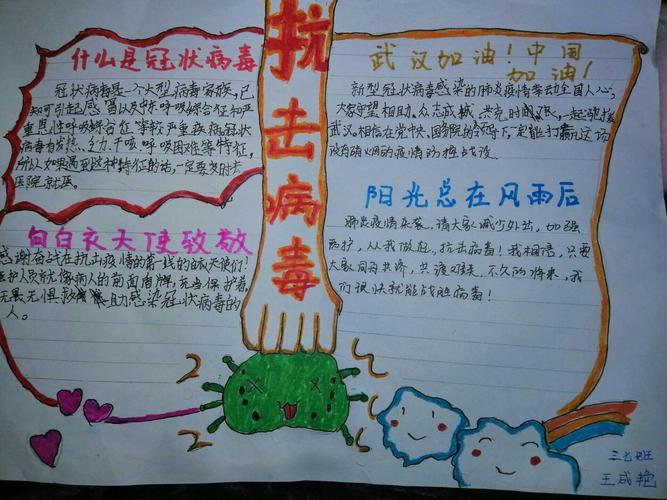 什么是冠状病毒
冠状病毒是一个大型病毒家族，已
知可引起感冒以及中呼吸综合征和严
重急性呼吸综合征等较严重疾病冠状
病毒为发热、乏力、干咳、呼吸困难等特征，
所以如果遇到这种特征的话，一定要及时去
医院就医。
向白衣天使致敬
感谢奋战在抗击疫情的第一线的白衣天使们！
医护人员就像病人的前面盾牌，充当保护着，
无畏无惧救助感染冠状病毒的
人。
抗击病毒
武汉加油！中国
加油！
新型冠状病毒感染的肺炎疫情牵动全国人心，
大家守望相助、众志成城、共克时艰，一起驰援
武汉。相信在党中央、国务院的领导下一定能打赢这场
没有硝烟的疫情防控战役。
阳光总在风雨后
肺炎疫情来袭，请大家减少外出，加强
防护，从我做起，抗击病毒！我相信，只要
大家同舟共济，共渡难关，不久的将来，我
们很快就能战胜病毒！
三七班
王成艳